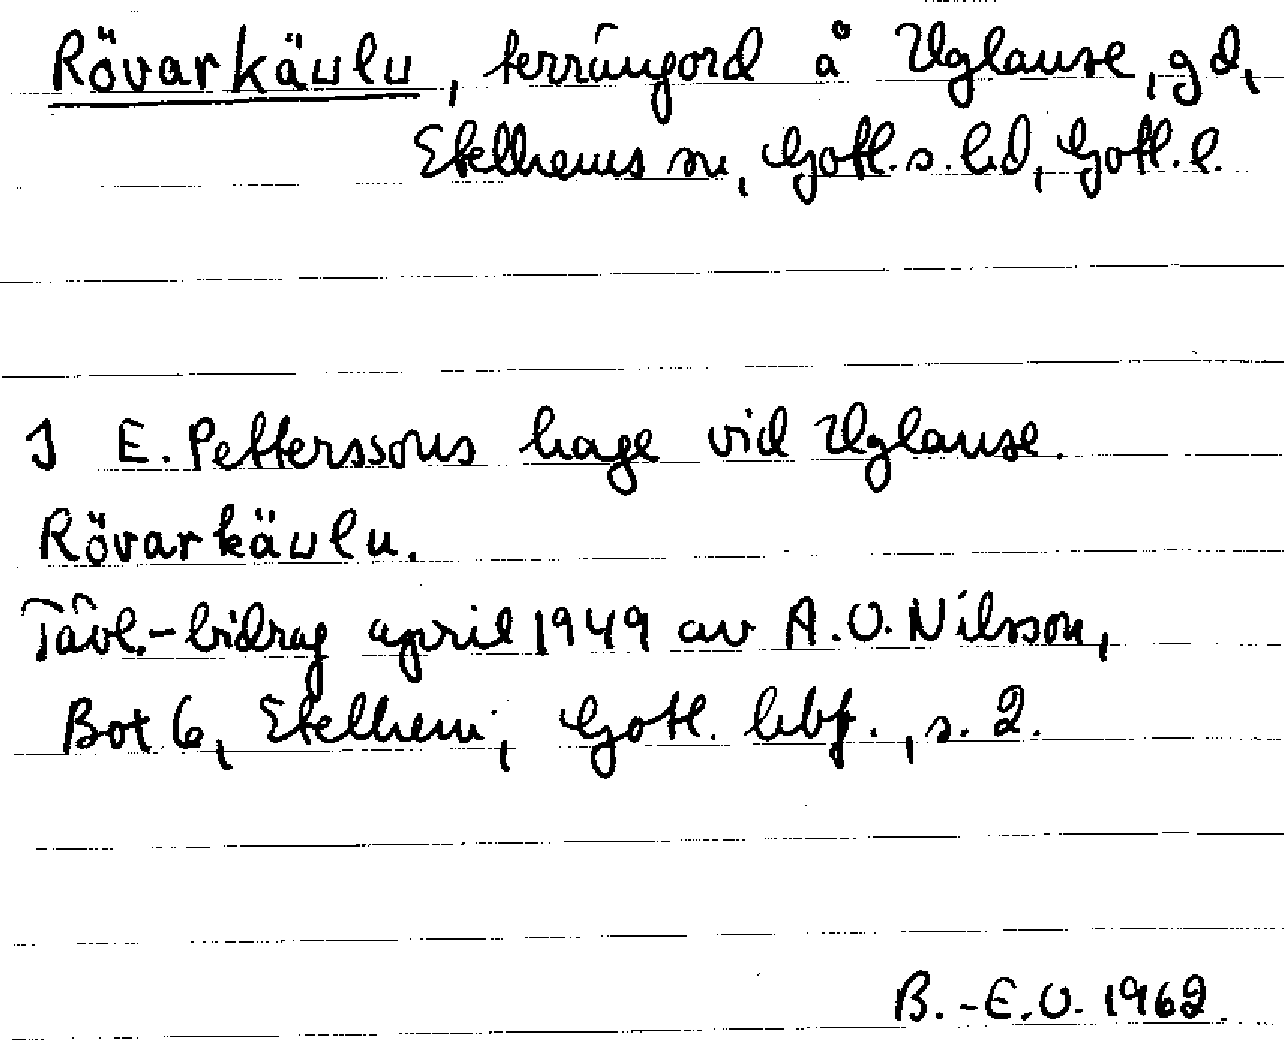 Rövarkäulu, terrängord å Uglause, gd,
Etelhems sn, Gotl. s. hd, Gotl. l.
I E. Petterssons hage vid Uglause.
Rövarkäulu.
Tävl.-bidrag april 1949 av A.O. Nilsson,
Bot 6, Etelhem; Gotl. hbf., s. 2.
B.-E.O. 1962